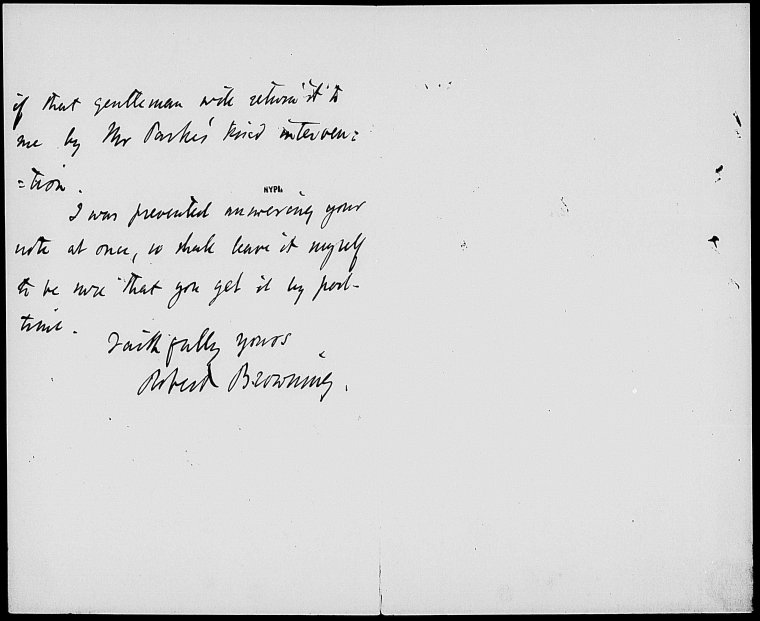 if that gentleman will return it to
me by Mr Parkes' kind interven=
=tion.
NYPL
I was prevented answering your
note at once, so shall leave it myself
to be sure that you get it by post-
time.
Faithfully yours
Robert Browning.